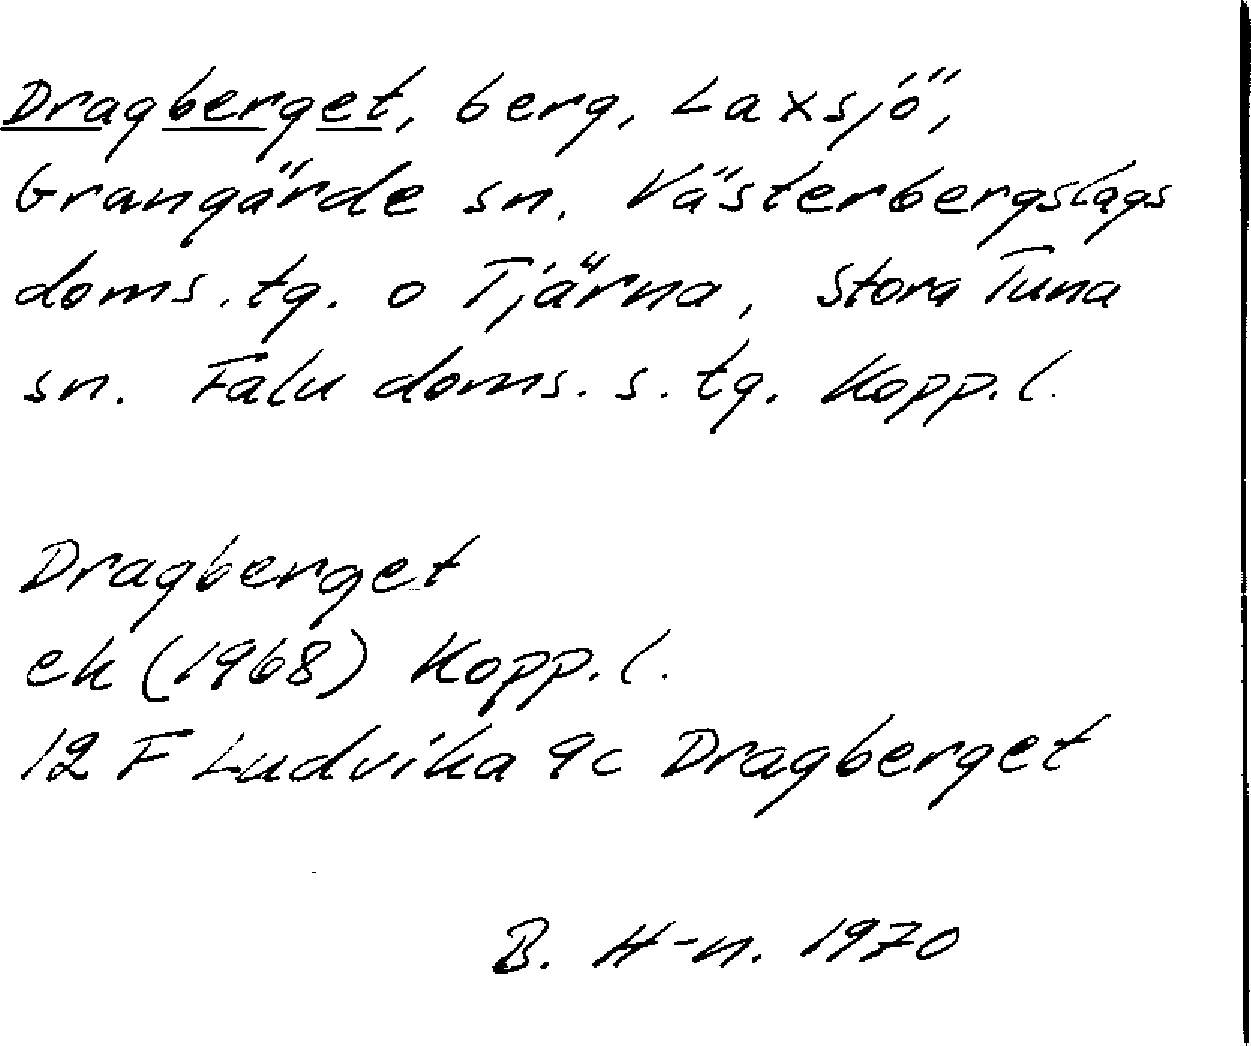 Dragberget, berg, Laxsjö,
Grangärde sn. Västerbergslags
doms. tg. o Tjärna, Stora Tuna
sn. Falu doms. s. tg. Kopp. l.
Dragberget
ek (1968) Kopp. l.
12 F Ludvika 9c Dragberget
B. H-n. 1970